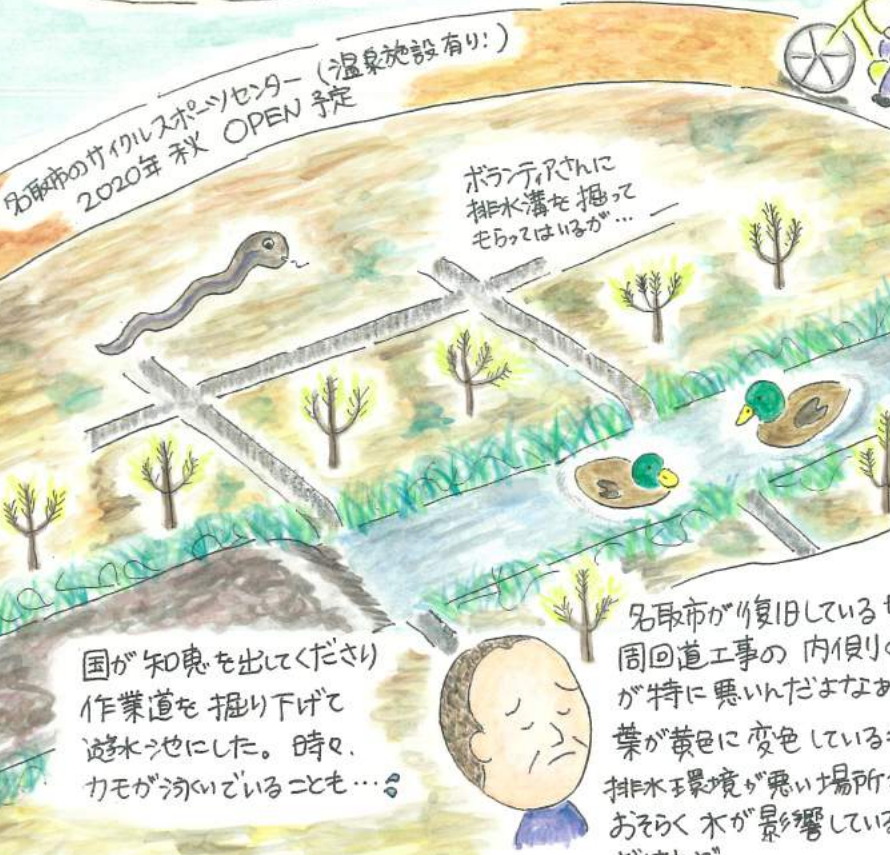 名取市のサイクルスポーツセンター (温泉施設有り!)
2020年 秋 OPEN 予定
ボランティアさんに
排水溝を掘って
もらってはいるが…
国が知恵を出してくださり
作業道を掘り下げて
遊水池にした。時々、
カモが泳いでいることも…
名取市が復旧している
周回道工事の 内側の
が特に悪いんだよなあ
葉が黄色に変色している
排水環境が悪い場所
おそらく水が影響している